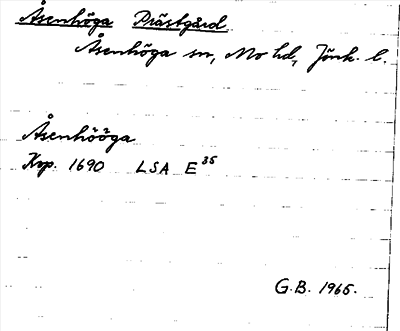 Åsenhöga Prästgård
Åsenhöga sn, Mo hd, Jönk. l.
Åsenhööga
Kop. 1690 LSA E 35
G.B. 1965.